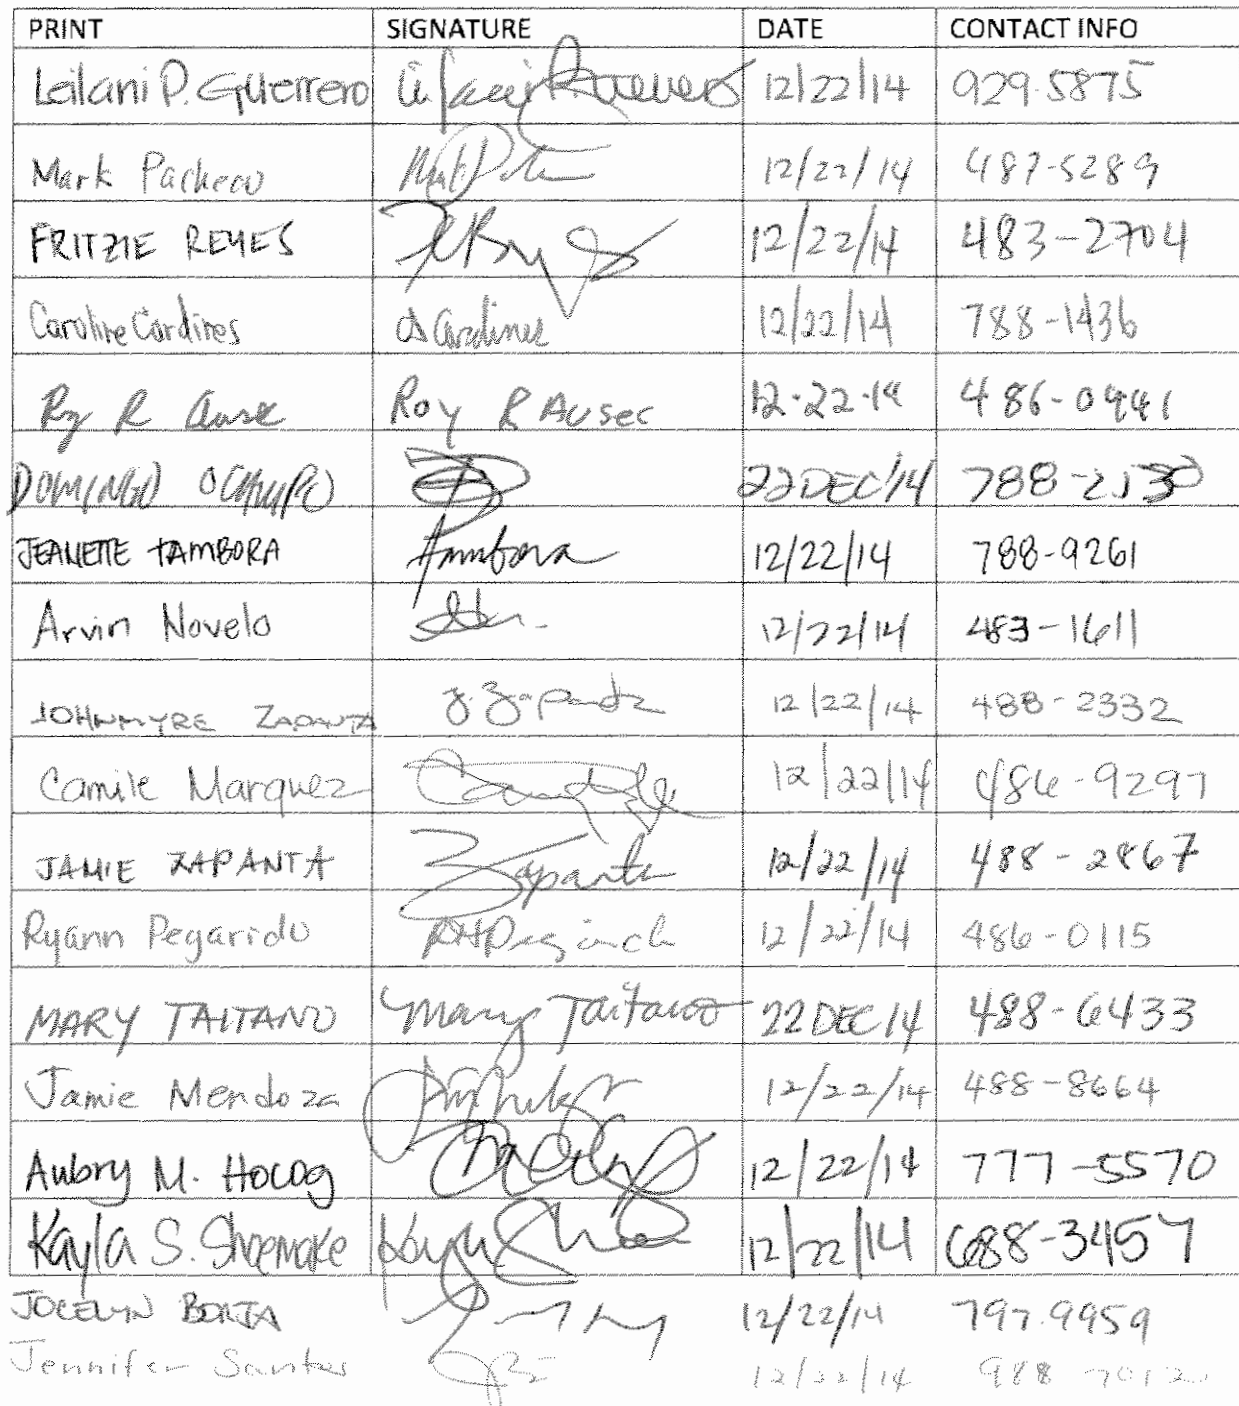 PRINT SIGNATURE DATE CONTACT INFO
Leilani P. Guerrero 12/22/14 929.5875
Mark Pacheco 12/22/14 487-5289
FRITZIE REYES 12/22/14 483-2704
Caroline Cardines Cardines 12/22/14 788-1436
Roy R Ausec 12-22-14 486-0441
DOMINGO OCAMPO 22DEC/14 788-2530
JEANETTE TAMBORA Tambora 12/22/14 788-9261
Arvin Novelo 12/22/14 483-1611
JOHNMYRE ZAPANTA J. Zapanta 12/22/14 488-2332
Camile Marquez 12/22/14 486-9297
JAMIE ZAPANTA Zapanta 12/22/14 488-2867
Ryann Pegarido 12/22/14 486-0115
MARY TAITANO Mary Taitano 22DEC14 488-6433
Jamie Mendoza 12/22/14 488-8664
Aubry M. Hocog 12/22/14 777-5570
Kayla S. Shoemake 12/22/14 688-3457
JOCELYN BORJA 12/22/14 797.9959
Jennifer Santos 12/22/14 988 7012